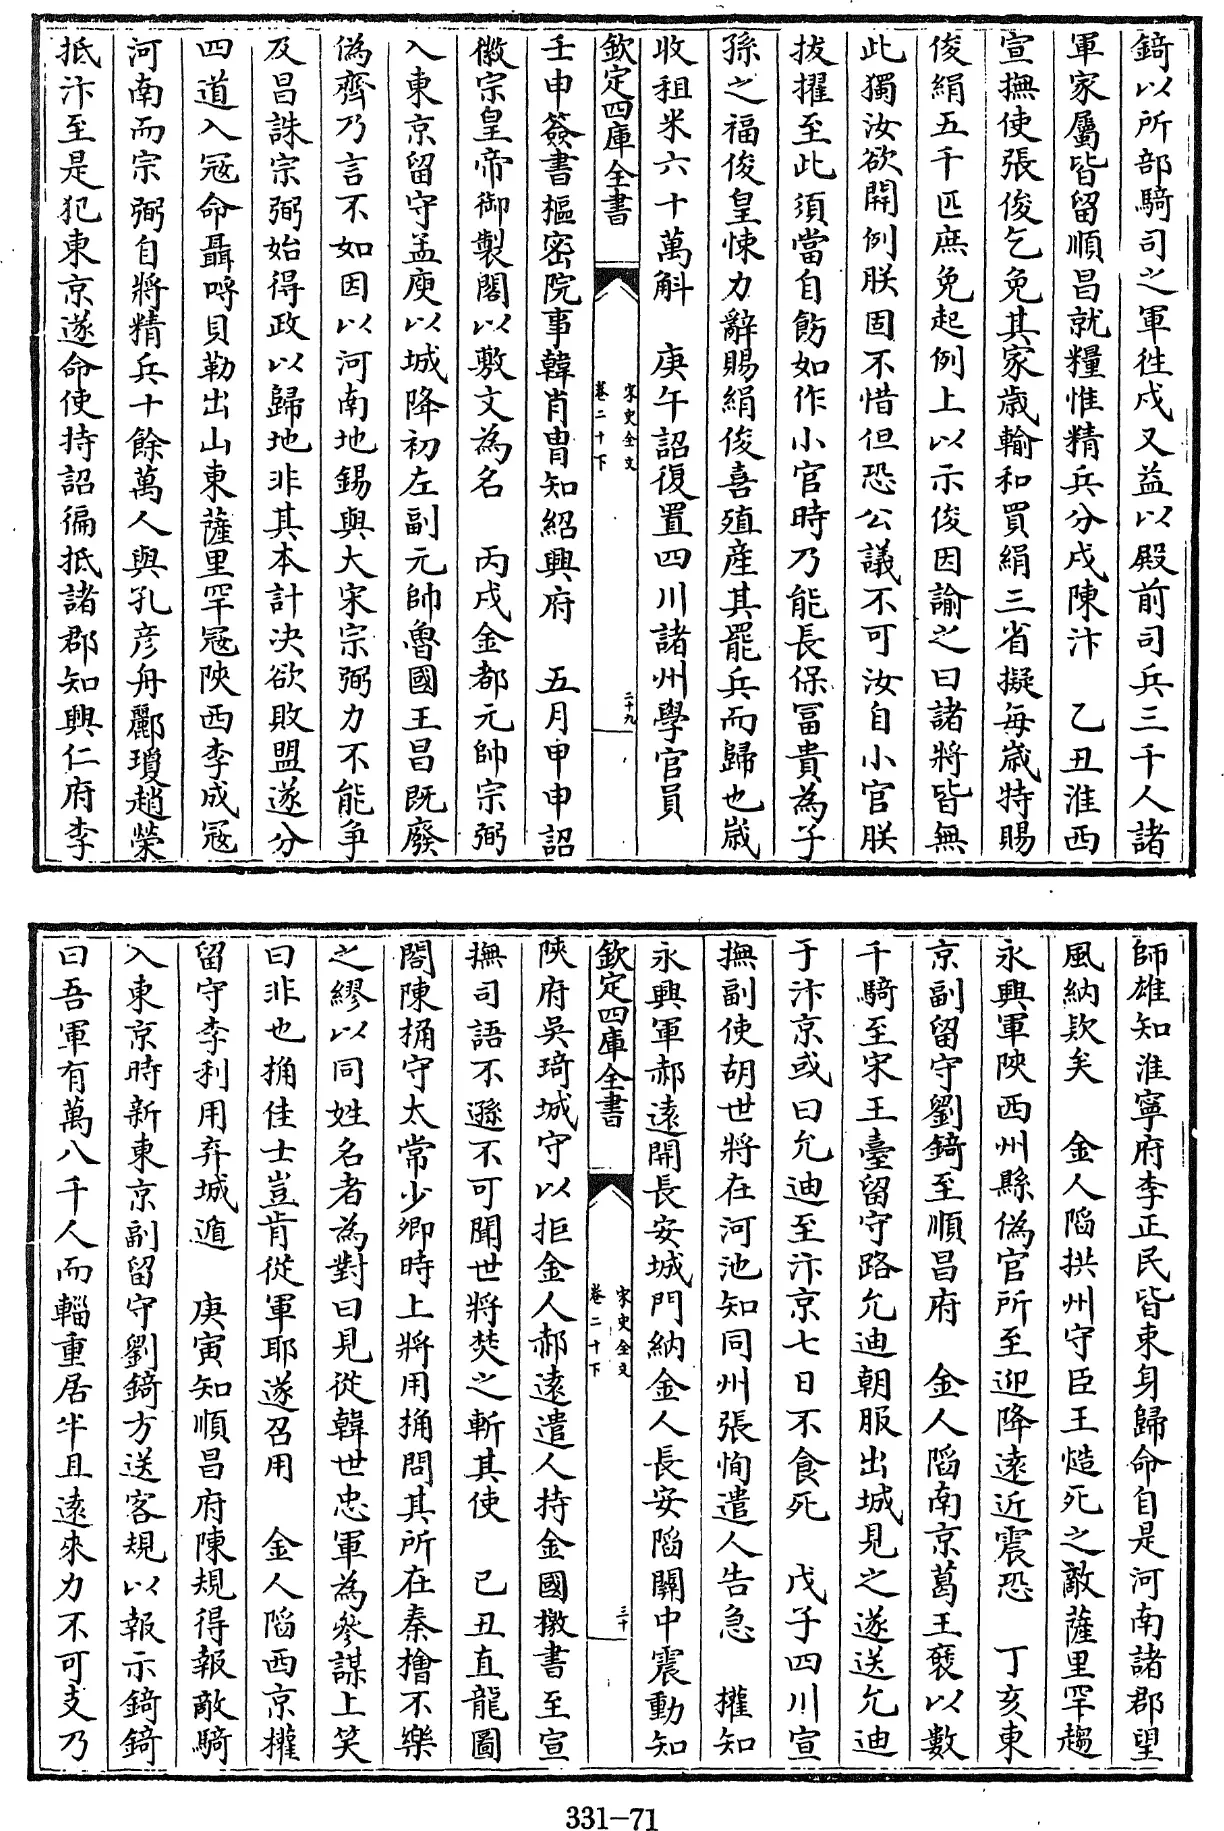 錡以所部騎司之軍徃戍又益以殿前司兵三千人諸
軍家屬皆留順昌就糧惟精兵分戍陳汴　乙丑淮西
宣撫使張俊乞免其家歳輸和買絹三省擬每歳特賜
俊絹五千匹庶免起例上以示俊因諭之曰諸將皆無
此獨汝欲開例朕固不惜但恐公議不可汝自小官朕
拔擢至此須當自飭如作小官時乃能長保冨貴為子
孫之福俊皇悚力辭賜絹俊喜殖産其罷兵而歸也歳
收租米六十萬斛　庚午詔復置四川諸州學官員
欽定四庫全書
宋史全文
卷二十下
二十九
壬申簽書樞密院事韓肖胄知紹興府　五月甲申詔
徽宗皇帝御製閣以敷文為名　丙戌金都元帥宗弼
入東京留守孟庾以城降初左副元帥魯國王昌既廢
偽齊乃言不如因以河南地錫與大宋宗弼力不能爭
及昌誅宗弼始得政以歸地非其本計決欲敗盟遂分
四道入冦命聶哷貝勒出山東薩里罕冦陜西李成冦
河南而宗弼自將精兵十餘萬人與孔彦舟酈瓊趙榮
抵汴至是犯東京遂命使持詔徧抵諸郡知興仁府李
師雄知淮寧府李正民皆束身歸命自是河南諸郡望
風納欵矣　金人陷拱州守臣王慥死之敵薩里罕趨
永興軍陜西州縣偽官所至迎降遠近震恐　丁亥東
京副留守劉錡至順昌府　金人陷南京葛王褎以數
千騎至宋王臺留守路允迪朝服出城見之遂送允迪
于汴京或曰允迪至汴京七日不食死　戊子四川宣
撫副使胡世將在河池知同州張恂遣人告急　權知
永興軍郝遠開長安城門納金人長安陷關中震動知
欽定四庫全書
宋史全文
卷二十下
三十
陜府吳琦城守以拒金人郝遠遣人持金國檄書至宣
撫司語不遜不可聞世將焚之斬其使　己丑直龍圖
閣陳桷守太常少卿時上將用桷問其所在秦檜不樂
之繆以同姓名者為對曰見從韓世忠軍為參謀上笑
曰非也桷佳士豈肯從軍耶遂召用　金人陷西京權
留守李利用弃城遁　庚寅知順昌府陳規得報敵騎
入東京時新東京副留守劉錡方送客規以報示錡錡
曰吾軍有萬八千人而輜重居半且遠來力不可支乃
331-71